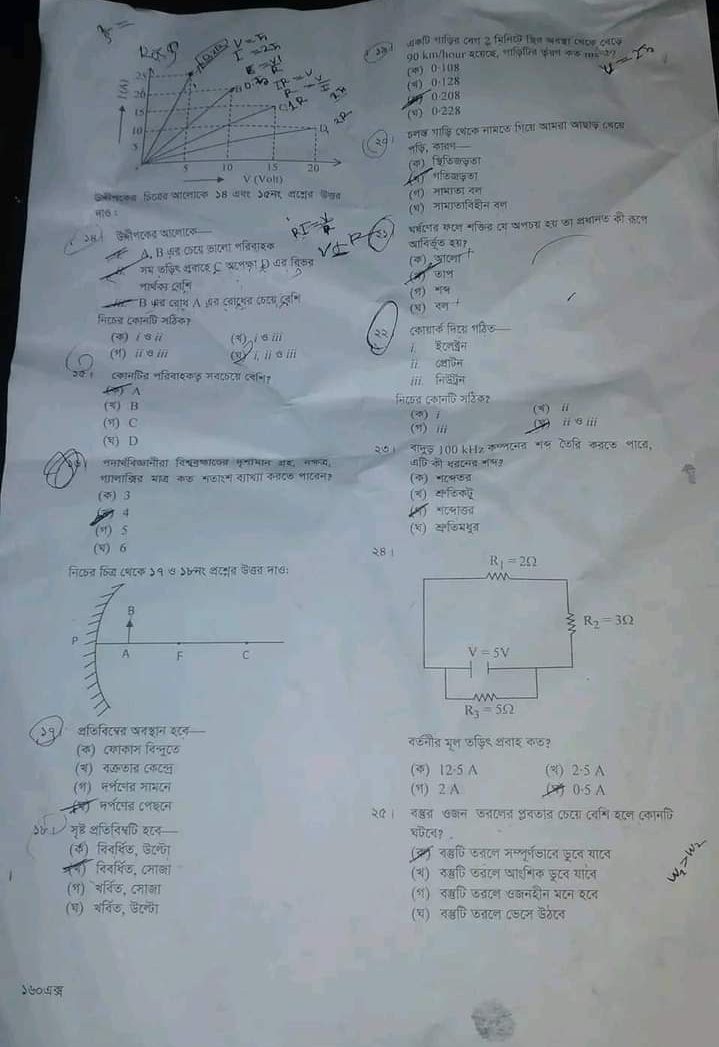 I (A)
25
20
15
10
5
A
B
C
D
5 10 15 20
V (Volt)
উদ্দীপকের চিত্রের আলোকে ১৪ এবং ১৫নং প্রশ্নের উত্তর
দাও :
১৪। উদ্দীপকের আলোকে—
i. A, B এর চেয়ে ভালো পরিবাহক
ii. সম তড়িৎ প্রবাহে C অপেক্ষা D এর বিভব
পার্থক্য বেশি
iii. B এর রোধ A এর রোধের চেয়ে বেশি
নিচের কোনটি সঠিক?
(ক) i ও ii (খ) i ও iii
(গ) ii ও iii (ঘ) i, ii ও iii
১৫। কোনটির পরিবাহকত্ব সবচেয়ে বেশি?
(ক) A
(খ) B
(গ) C
(ঘ) D
১৬। পদার্থবিজ্ঞানীরা বিশ্বব্রহ্মাণ্ডের দৃশ্যমান গ্রহ, নক্ষত্র,
গ্যালাক্সির মাত্র কত শতাংশ ব্যাখ্যা করতে পারেন?
(ক) 3
(খ) 4
(গ) 5
(ঘ) 6
নিচের চিত্র থেকে ১৭ ও ১৮নং প্রশ্নের উত্তর দাও:
B
P A F C
১৭। প্রতিবিম্বের অবস্থান হবে—
(ক) ফোকাস বিন্দুতে
(খ) বক্রতার কেন্দ্রে
(গ) দর্পণের সামনে
(ঘ) দর্পণের পেছনে
১৮। সৃষ্ট প্রতিবিম্বটি হবে—
(ক) বিবর্ধিত, উল্টো
(খ) বিবর্ধিত, সোজা
(গ) খর্বিত, সোজা
(ঘ) খর্বিত, উল্টো
১৬০এক্স
১৯। একটি গাড়ির বেগ 2 মিনিটে স্থির অবস্থা থেকে বেড়ে
90 km/hour হয়েছে, গাড়িটির ত্বরণ কত ms⁻²?
(ক) 0·108
(খ) 0·128
(গ) 0·208
(ঘ) 0·228
২০। চলন্ত গাড়ি থেকে নামতে গিয়ে আমরা আছাড় খেয়ে
পড়ি, কারণ—
(ক) স্থিতিজড়তা
(খ) গতিজড়তা
(গ) সাম্যতা বল
(ঘ) সাম্যতাবিহীন বল
২১। ঘর্ষণের ফলে শক্তির যে অপচয় হয় তা প্রধানত কী রূপে
আবির্ভূত হয়?
(ক) আলো
(খ) তাপ
(গ) শব্দ
(ঘ) বল
২২। কোয়ার্ক দিয়ে গঠিত—
i. ইলেক্ট্রন
ii. প্রোটন
iii. নিউট্রন
নিচের কোনটি সঠিক?
(ক) i (খ) ii
(গ) iii (ঘ) ii ও iii
২৩। বাদুড় 100 kHz কম্পনের শব্দ তৈরি করতে পারে,
এটি কী ধরনের শব্দ?
(ক) শব্দেতর
(খ) শ্রুতিকটু
(গ) শব্দোত্তর
(ঘ) শ্রুতিমধুর
২৪।
R₁ = 2Ω
R₂ = 3Ω
V = 5V
R₃ = 5Ω
বর্তনীর মূল তড়িৎ প্রবাহ কত?
(ক) 12·5 A (খ) 2·5 A
(গ) 2 A (ঘ) 0·5 A
২৫। বস্তুর ওজন তরলের প্লবতার চেয়ে বেশি হলে কোনটি
ঘটবে?
(ক) বস্তুটি তরলে সম্পূর্ণভাবে ডুবে যাবে
(খ) বস্তুটি তরলে আংশিক ডুবে যাবে
(গ) বস্তুটি তরলে ওজনহীন মনে হবে
(ঘ) বস্তুটি তরলে ভেসে উঠবে
W₁>W₂